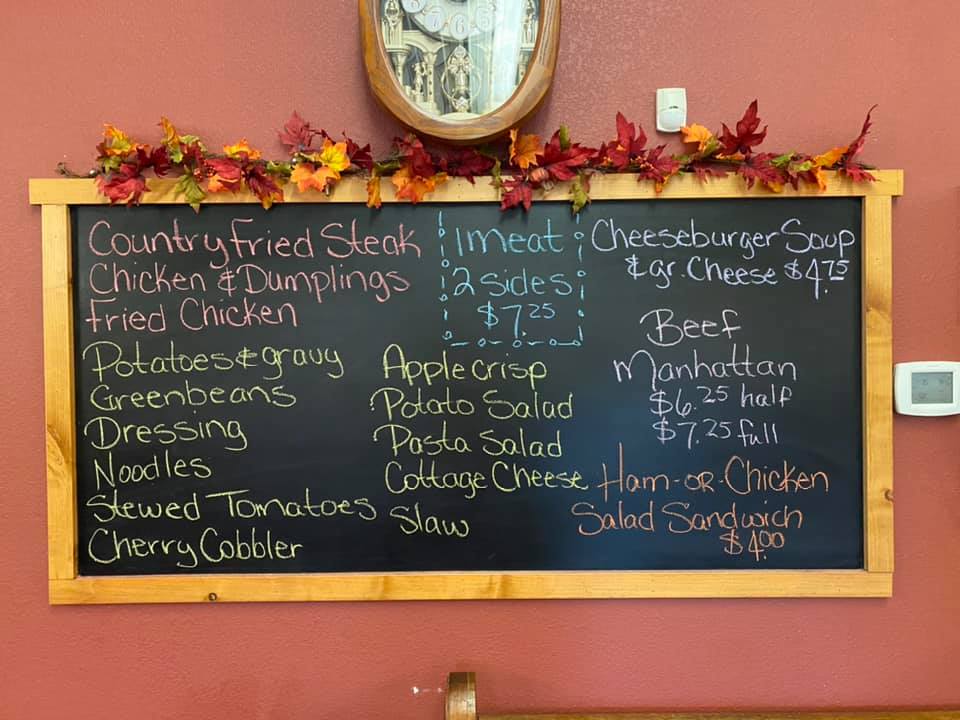 Country Fried Steak
Chicken & Dumplings
Fried Chicken
1 meat
2 sides
$7.25
Cheeseburger Soup
& gr. Cheese $4.75
Potatoes & gravy
Greenbeans
Dressing
Noodles
Stewed Tomatoes
Cherry Cobbler
Apple crisp
Potato Salad
Pasta Salad
Cottage Cheese
Slaw
Beef
Manhattan
$6.25 half
$7.25 full
Ham-or-Chicken
Salad Sandwich
$4.00